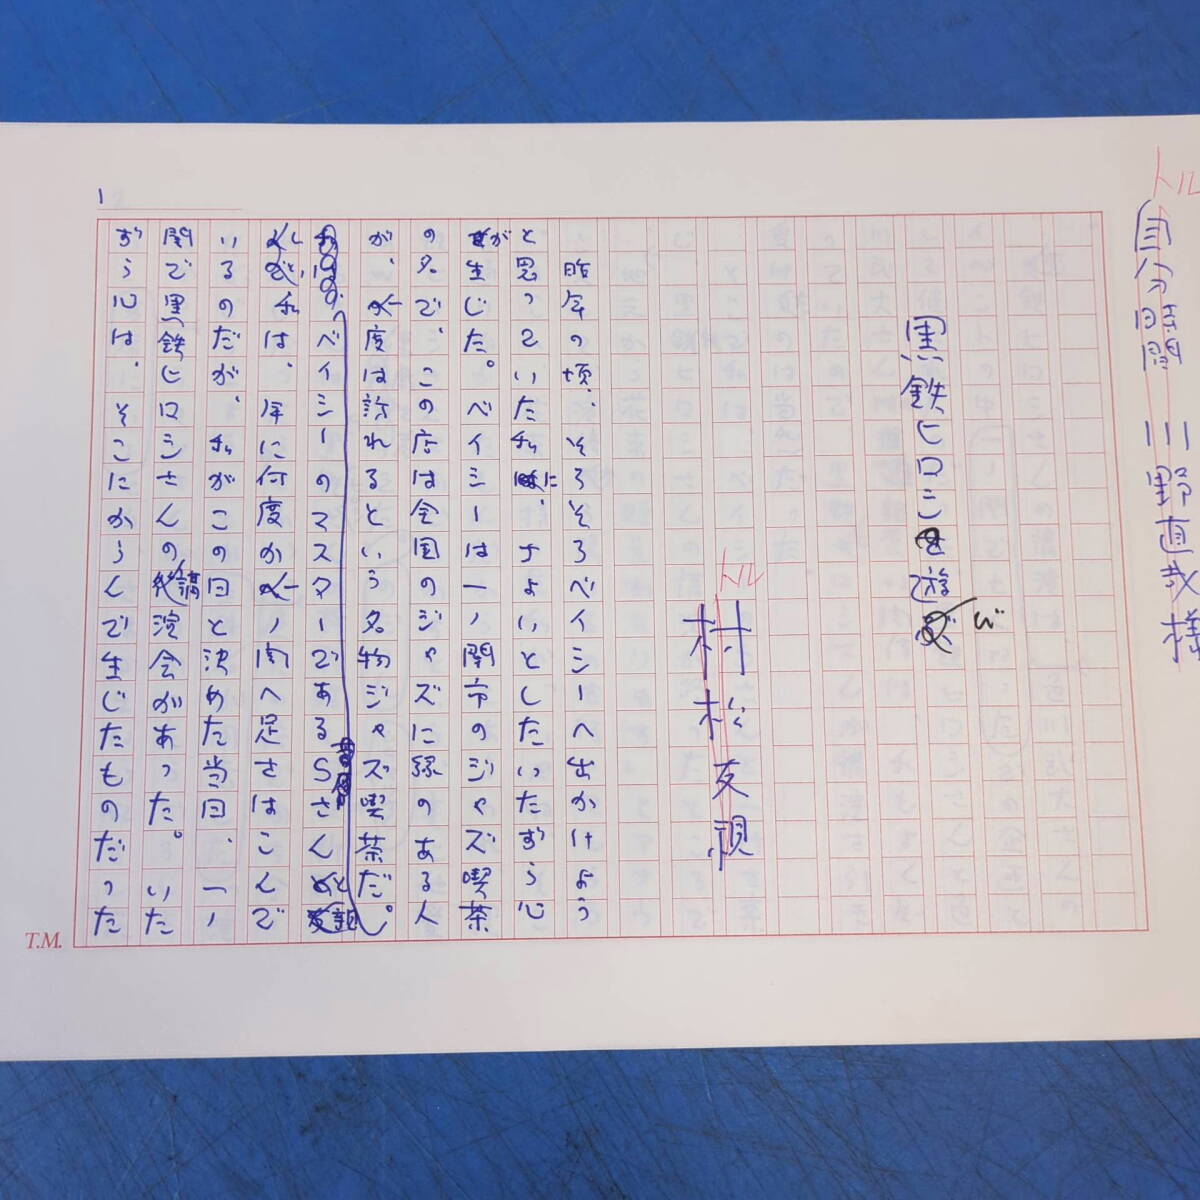 トル
自分時間 川野直哉様
黒鉄ヒロシと遊び
トル
村松友視
昨年の頃、そろそろベイシーへ出かけよう
と思っていた私に、ちょいとしたいたずら心
が生じた。ベイシーは一ノ関市のジャズ喫茶
の名で、この店は全国のジャズに縁のある人
が、一度は訪れるという名物ジャズ喫茶だ。
ベイシーのマスターであるSさんと
私は、年に何度か一ノ関へ足をはこんで
いるのだが、私がこの日と決めた当日、一ノ
関で黒鉄ヒロシさんの講演会があった。いた
ずら心は、そこにからんで生じたものだった
1
T.M.